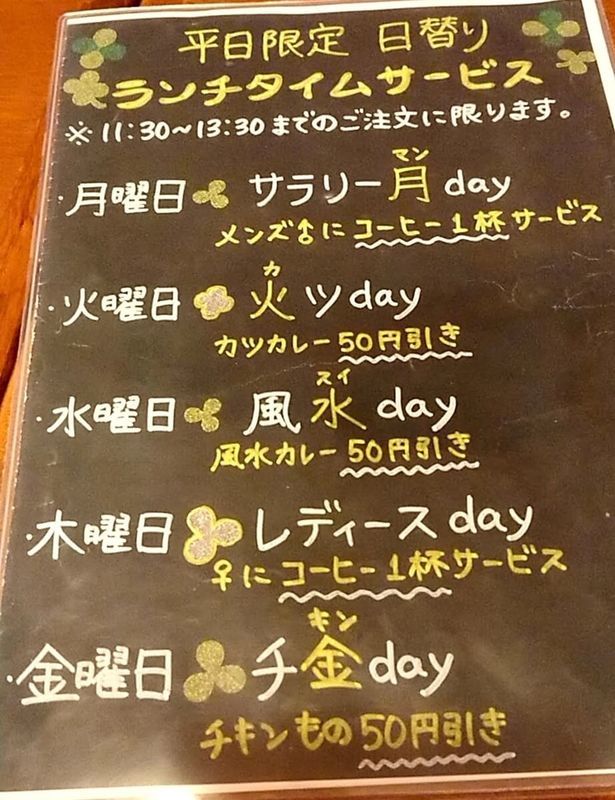 平日限定 日替り
ランチタイムサービス
※11:30~13:30までのご注文に限ります。
・月曜日 サラリー月day
マン
メンズ♂にコーヒー1杯サービス
・火曜日 火ツday
カ
カツカレー50円引き
・水曜日 風水day
スイ
風水カレー50円引き
・木曜日 レディースday
♀にコーヒー1杯サービス
・金曜日 チ金day
キン
チキンもの50円引き